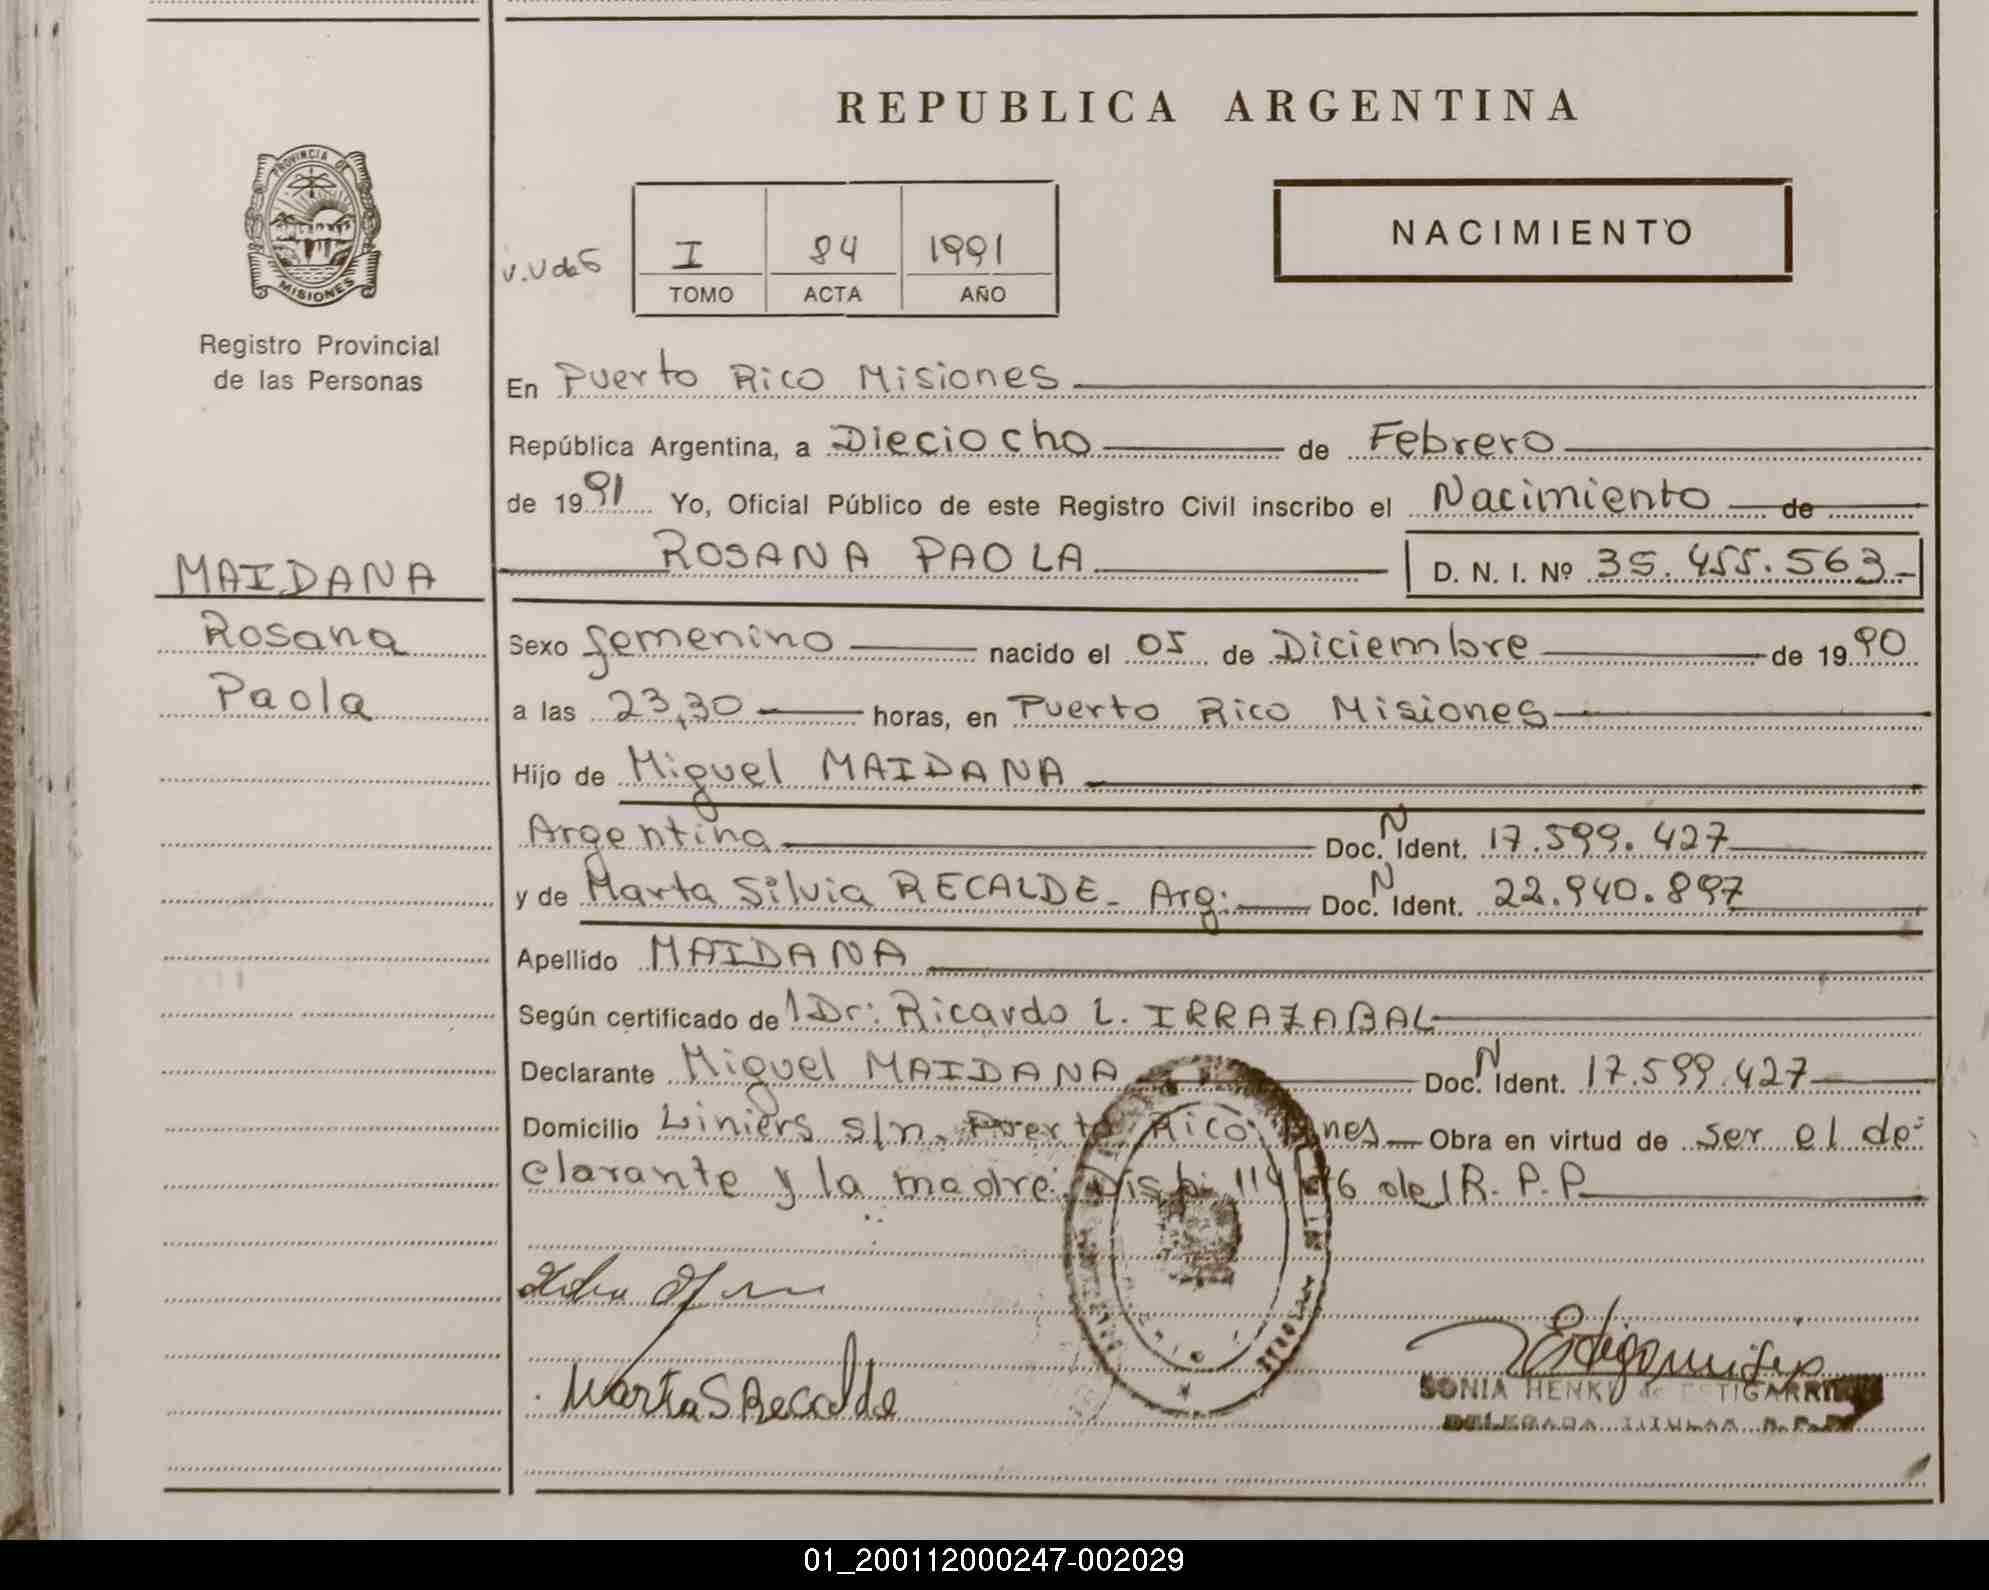 REPUBLICA ARGENTINA
PROVINCIA DE
MISIONES
Registro Provincial
de las Personas
NACIMIENTO
I 84 1991
TOMO ACTA AÑO
En Puerto Rico Misiones
República Argentina, a Dieciocho de Febrero
de 1991 Yo, Oficial Público de este Registro Civil inscribo el Nacimiento de
ROSANA PAOLA D. N. I. Nº 35.455.563
MAIDANA
Rosana
Paola
Sexo femenino nacido el 05 de Diciembre de 1990
a las 23,30 horas, en Puerto Rico Misiones
Hijo de Miguel MAIDANA
Argentina Doc. N Ident. 17.599.427
y de Marta Silvia RECALDE - Arg: Doc. N Ident. 22.940.897
Apellido MAIDANA
Según certificado del Dr: Ricardo L. IRRAZABAL
Declarante Miguel MAIDANA Doc. N Ident. 17.599.427
Domicilio Liniers s/n. Puerto Rico Mnes Obra en virtud de ser el de-
clarante y la madre. Disp. 114 del R. P. P.
Marta S Recalde
SONIA HENKE de ESTIGARRIBIA
DELEGADA TITULAR R. P. P.
01_200112000247-002029